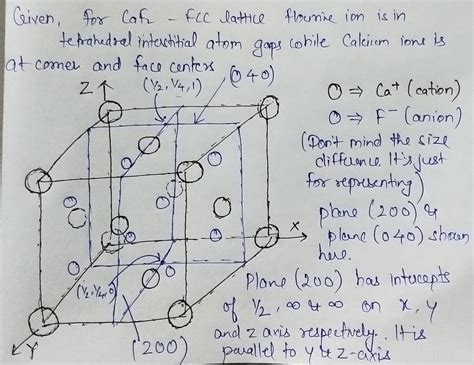 Given, for CaF2 - FCC lattice flourine ion is in
tetrahedral interstitial atom gaps while Calcium ions is
at corner and face centers
(1/2, 1/4, 1)
(0 4 0)
Z
O ⇒ Ca+ (cation)
O ⇒ F- (anion)
(Don't mind the size
diffuence It's just
for representing)
plane (200) &
plane (040) shown
here.
X
(1/2, 1/4, 0)
Plane (200) has intucepts
of 1/2, ∞ & ∞ on x, y
and z axis respectively. It is
parallel to y & z-axis
Y
(200)